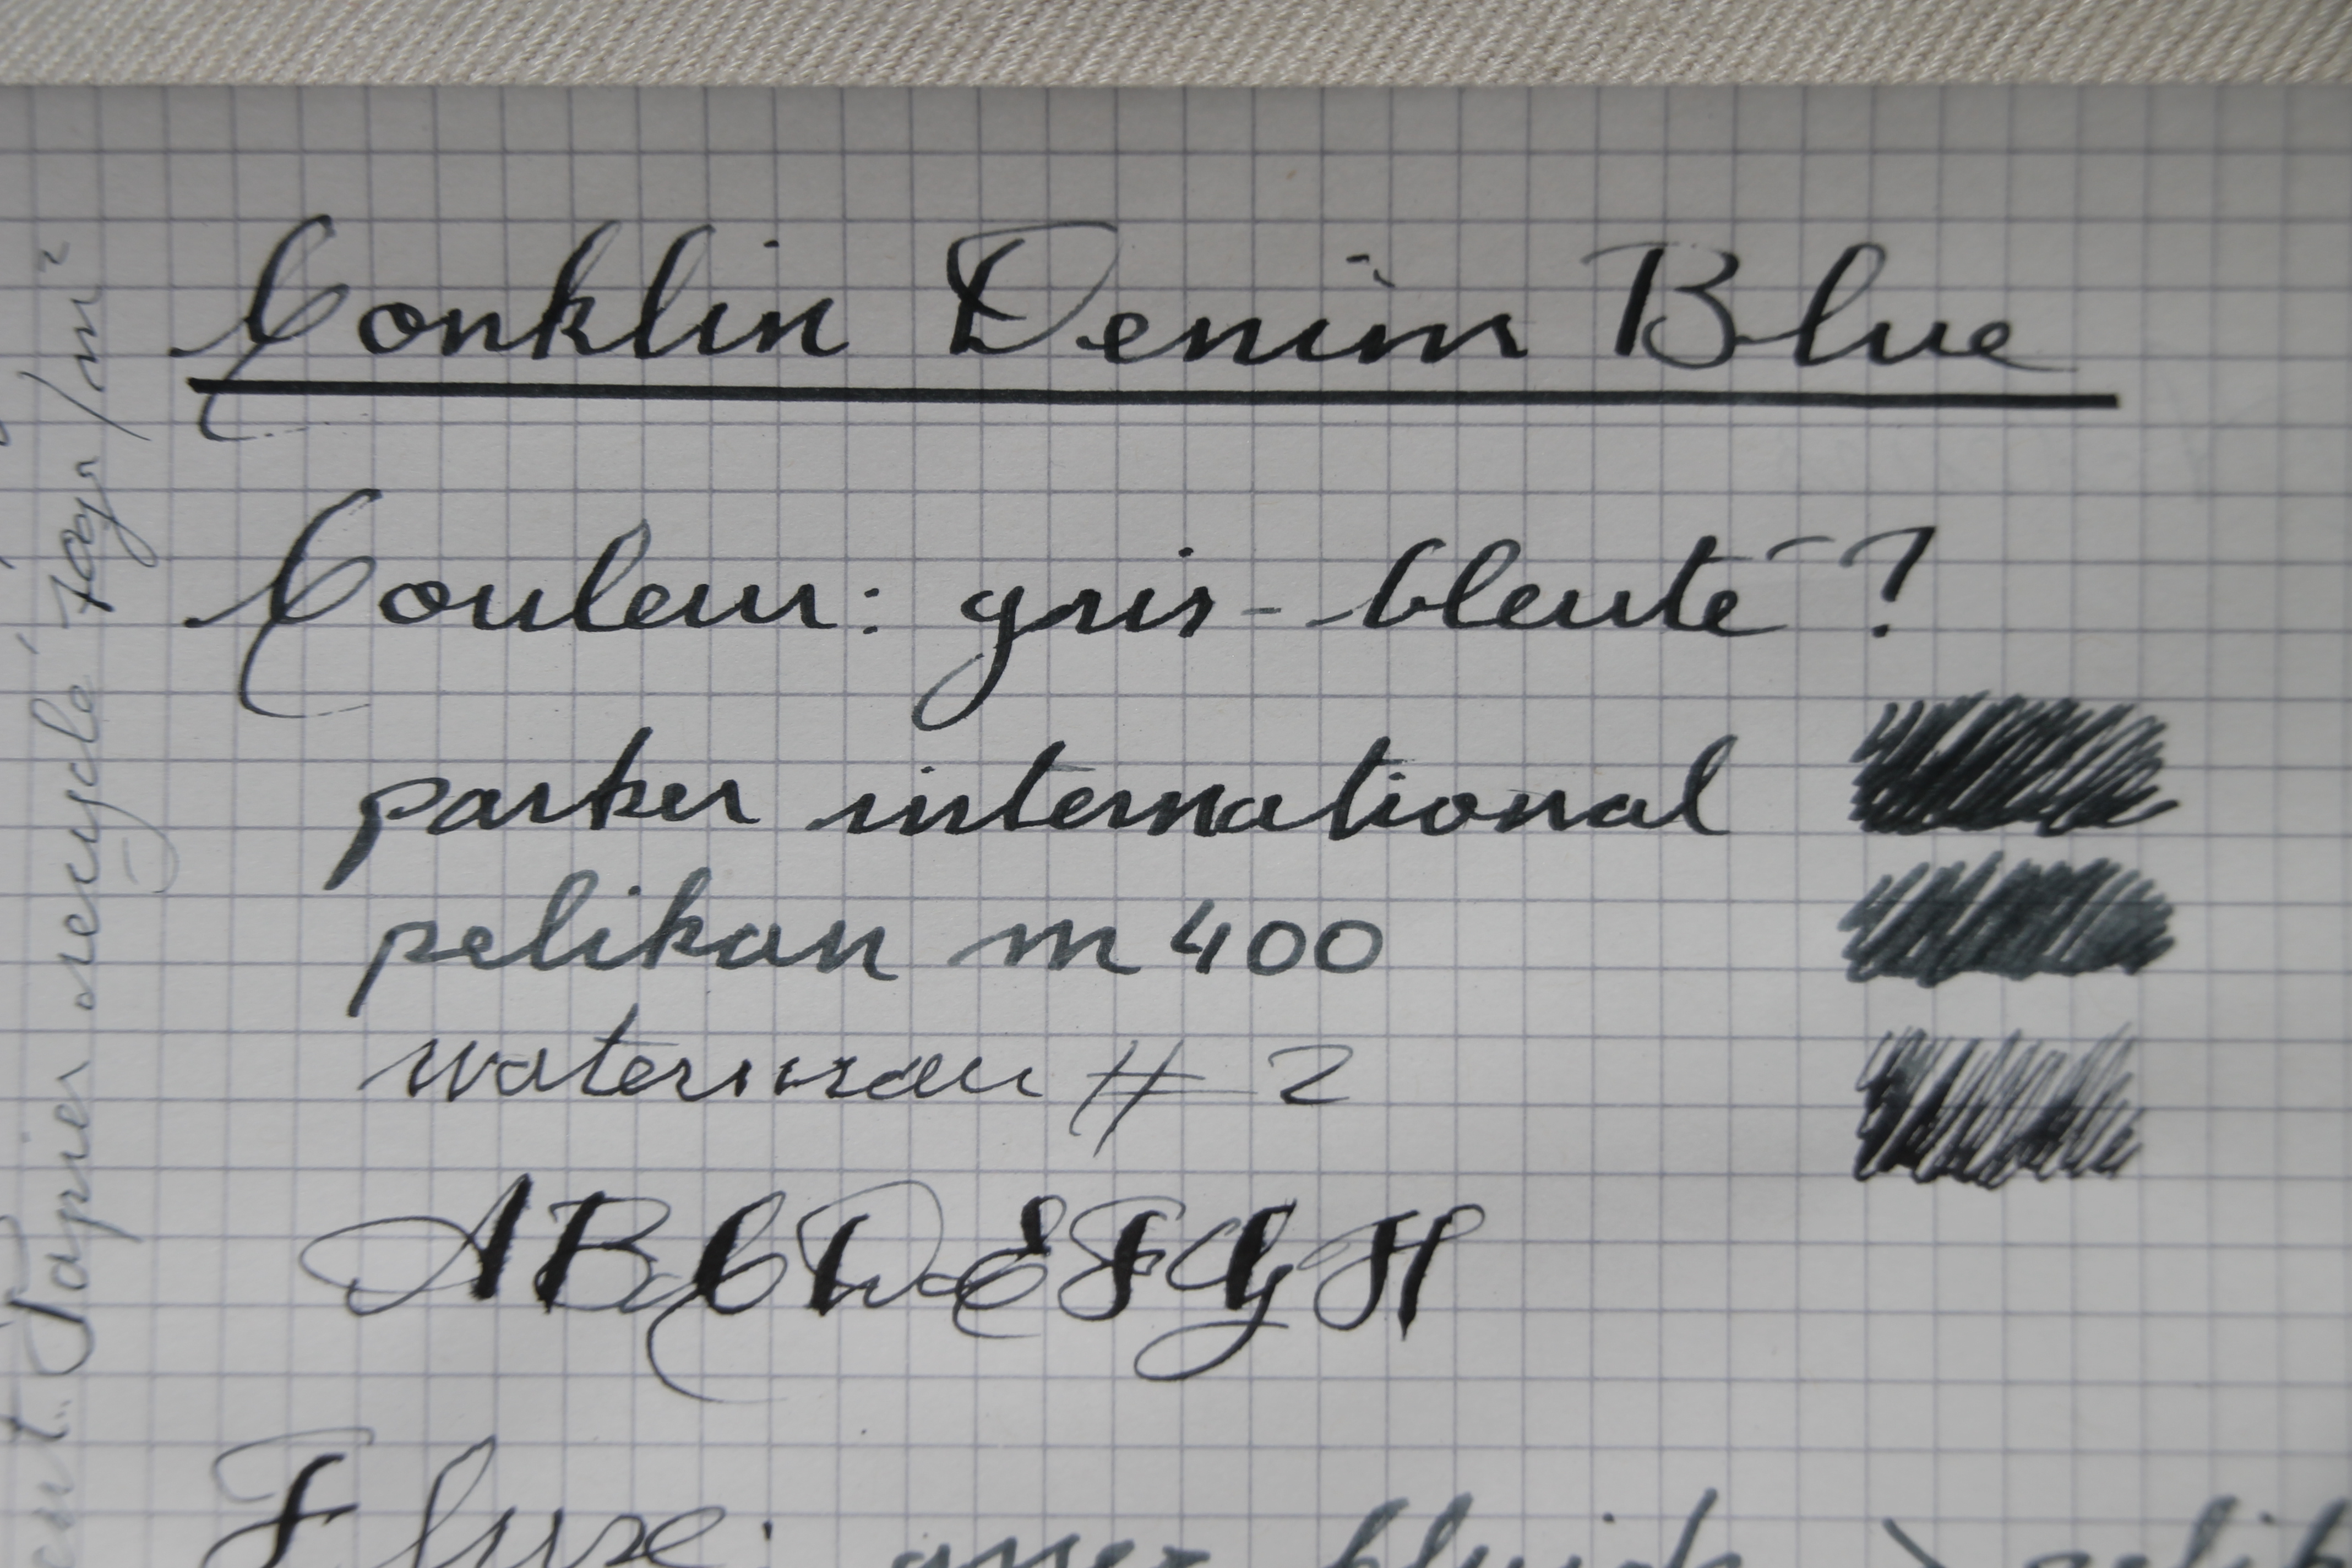 Conklin Denim Blue
Couleur: gris-bleuté ?
parker international
pelikan m400
waterman # 2
ABCDEFGH
Fluxe: assez fluide
Papier recyclé 70gr/m²